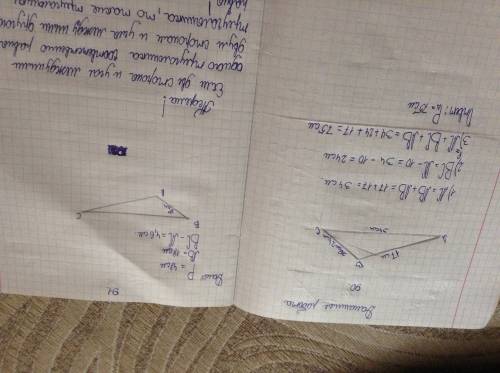 Домашняя работа
90
B
17 см
A
C
34см
1) AC = AB + AB = 17+17 = 34 см.
2) BC = AC - 10 = 34 - 10 = 24 см
3) P = AC + BC + AB = 34+24+17 = 75 см
Ответ: P = 75 см
91
Дано
P = 48 см
AB = 18 см
BC - AC = 4,6 см
B
A
C
Теорема!
Если две стороны и угол между ними
одного треугольника соответственно равны
двум сторонам и углу между ними другого
треугольника, то такие треугольники
равны!